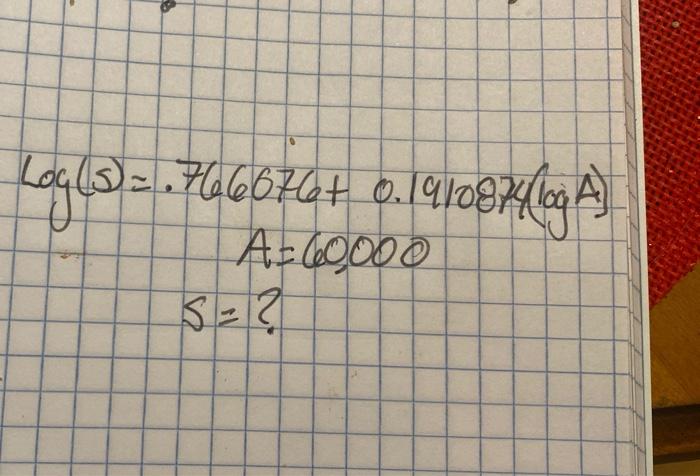 Log(S)= .766676+ 0.1910874(log A)
A=60,000
S=?